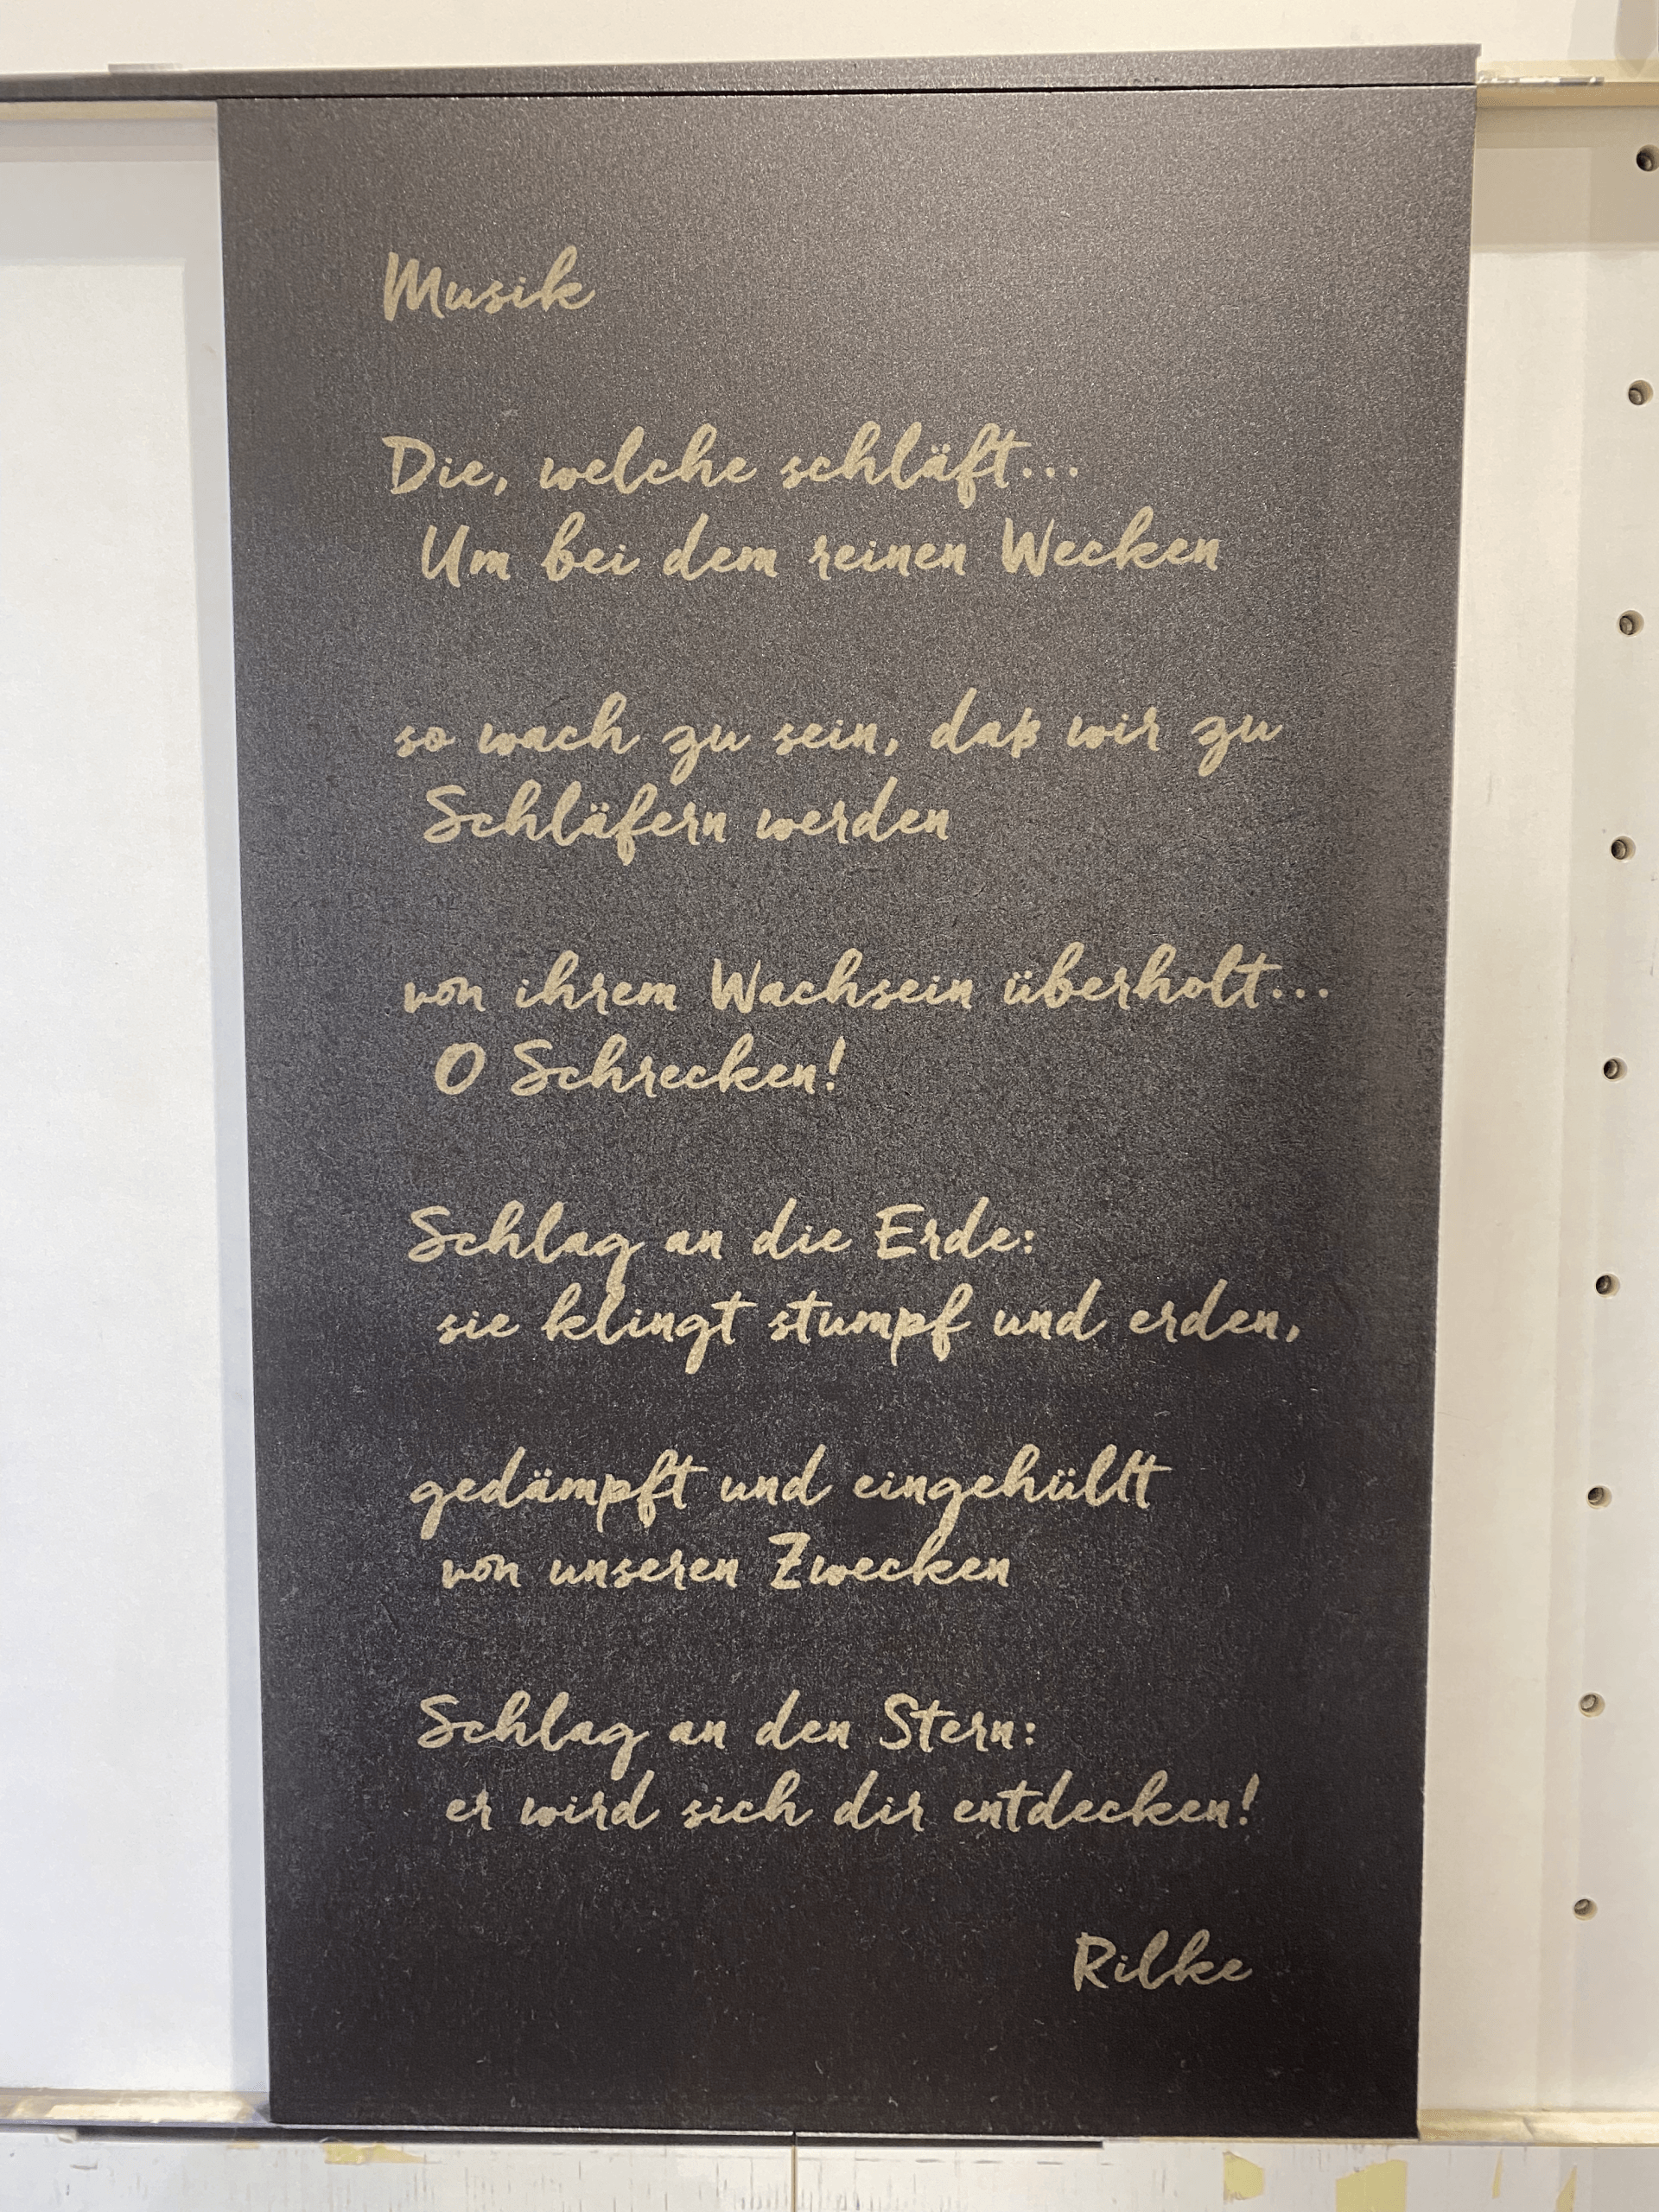 Musik
Die, welche schläft...
Um bei dem reinen Wecken
so wach zu sein, daß wir zu
Schläfern werden
von ihrem Wachsein überholt...
O Schrecken!
Schlag an die Erde:
sie klingt stumpf und erden,
gedämpft und eingehüllt
von unseren Zwecken
Schlag an den Stern:
er wird sich dir entdecken!
Rilke